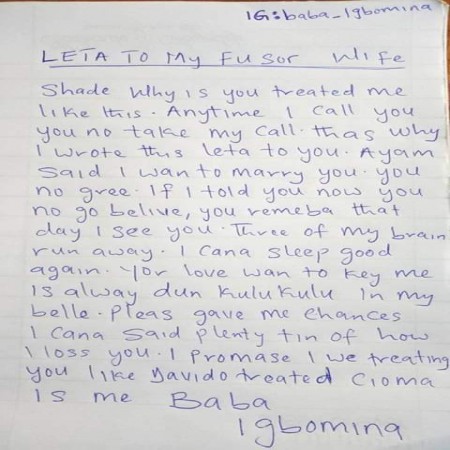 IG:baba_Igbomina
LETA TO My Fusor Wife
Shade Why is you treated me
like this. Anytime I call you
you no take my call. thas why
I wrote this leta to you. Ayam
said I want to marry you. you
no gree. If I told you now you
no go belive, you remeba that
day I see you. Three of my brain
run away. I cana sleep good
again. Yor love wan to key me
is alway dun kulukulu in my
belle. pleas gave me chances
I cana said plenty tin of how
I loss you. I promase I we treating
you like Davido treated Cioma
is me Baba
Igbomina